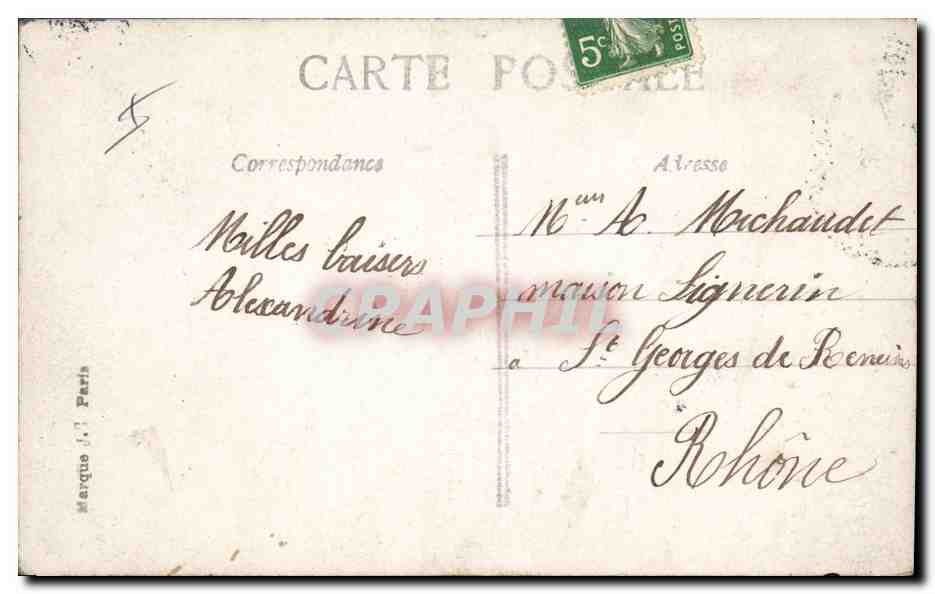 CARTE POSTALE
5c
POST
Correspondance
Adresse
Milles baisers
Alexandrine
CRAPHIL
Mem A. Michaudet
maison Lignerin
a St Georges de Reneins
Rhône
Marque J. Paris